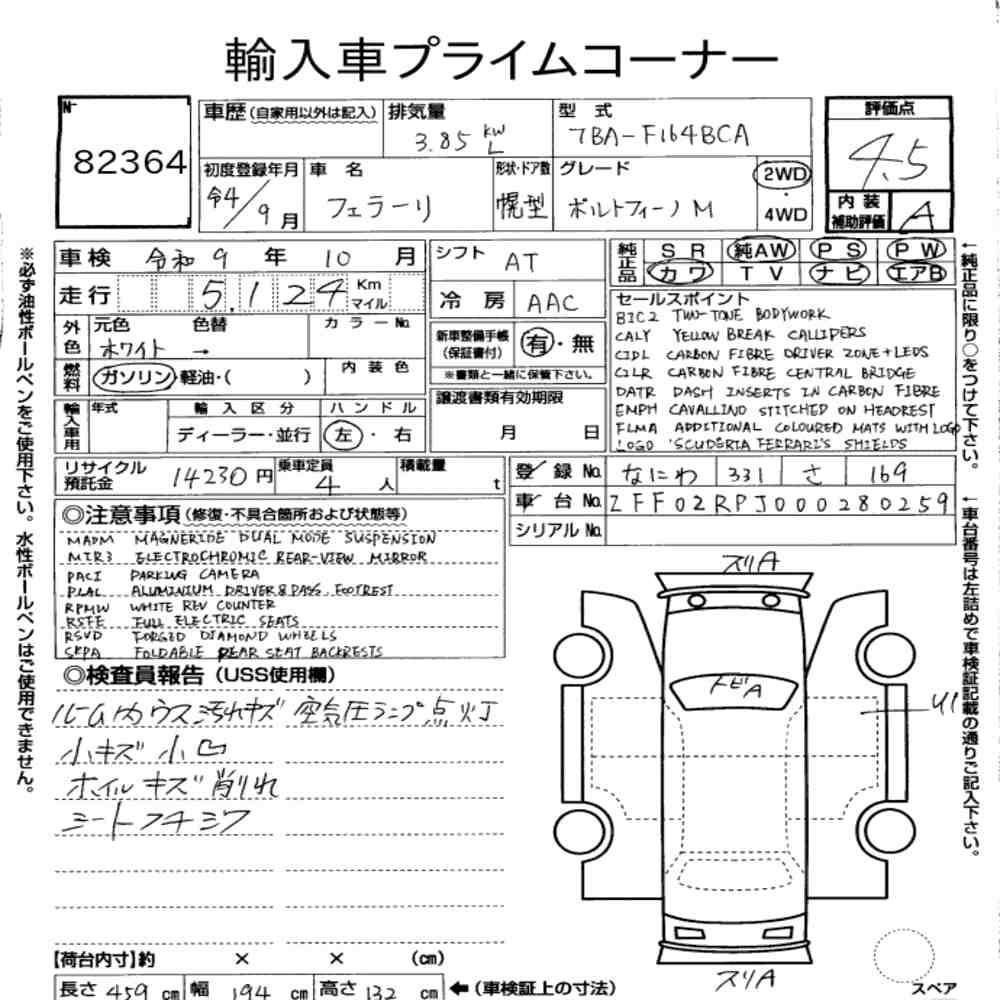 輸入車プライムコーナー
№
82364
車歴(自家用以外は記入)
排気量
3.85 kw L
型式
7BA-F164BCA
評価点
4.5
内装補助評価
A
初度登録年月
令4/9月
車名
フェラーリ
形状・ドア数
幌型
グレード
ポルトフィーノM
2WD・4WD
車検 令和9年10月
走行 5.124 Km マイル
外色
元色 色替 カラーNo.
ホワイト →
燃料
ガソリン・軽油・( )
内装色
輸入車用
年式
輸入区分
ディーラー・並行
ハンドル
左・右
シフト AT
冷房 AAC
新車整備手帳(保証書付) 有・無
※書類と一緒に保管下さい。
譲渡書類有効期限
月 日
純正品
SR 純AW PS PW
カワ TV ナビ エアB
セールスポイント
BIC2 TWO-TONE BODYWORK
CALY YELLOW BREAK CALLIPERS
CIDL CARBON FIBRE DRIVER ZONE+LEDS
CILR CARBON FIBRE CENTRAL BRIDGE
DATR DASH INSERTS IN CARBON FIBRE
EMPH CAVALLINO STITCHED ON HEADREST
FLMA ADDITIONAL COLOURED MATS WITH LOGO
LOGO 'SCUDERIA FERRARI'S SHIELDS
リサイクル預託金 14230円
乗車定員 4人
積載量 t
登録No. なにわ 331 さ 169
車台No. ZFF02RPJ000280259
シリアルNo.
◎注意事項(修復・不具合箇所および状態等)
MADM MAGNERIDE DUAL MODE SUSPENSION
MIR3 ELECTROCHROMIC REAR-VIEW MIRROR
PAC1 PARKING CAMERA
PLAL ALUMINIUM DRIVER&PASS FOOTREST
RPMW WHITE REV COUNTER
RSTE FULL ELECTRIC SEATS
RSVD FORGED DIAMOND WHEELS
SKPA FOLDABLE REAR SEAT BACKRESTS
◎検査員報告(USS使用欄)
ルームカウス汚れキズ 空気圧ランプ点灯
小キズ 小凹
ホイルキズ削れ
シートフチシワ
スリA
トビA
U1
スリA
【荷台内寸】約 × × (cm)
長さ 459 cm 幅 194 cm 高さ 132 cm ←(車検証上の寸法)
スペア
※必ず油性ボールペンをご使用下さい。水性ボールペンはご使用できません。
←純正品に限り○をつけて下さい。
←車台番号は左詰めで車検証記載の通りご記入下さい。